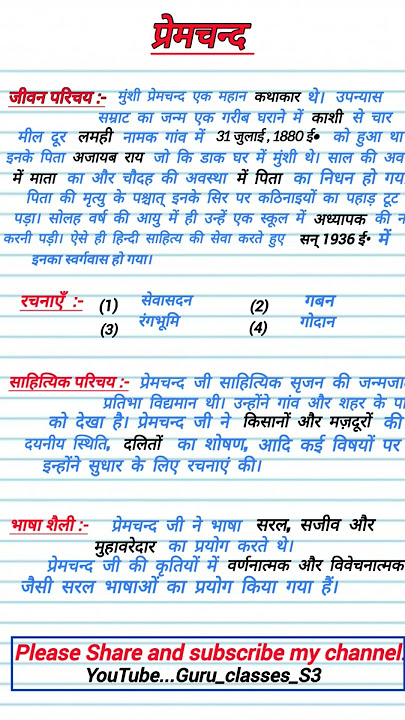 प्रेमचन्द
जीवन परिचय :- मुंशी प्रेमचन्द एक महान कथाकार थे। उपन्यास
सम्राट का जन्म एक गरीब घराने में काशी से चार
मील दूर लमही नामक गांव में 31 जुलाई, 1880 ई० को हुआ था
इनके पिता अजायब राय जो कि डाक घर में मुंशी थे। साल की अव
में माता का और चौदह की अवस्था में पिता का निधन हो गय
पिता की मृत्यु के पश्चात् इनके सिर पर कठिनाइयों का पहाड़ टूट
पड़ा। सोलह वर्ष की आयु में ही उन्हें एक स्कूल में अध्यापक की न
करनी पड़ी। ऐसे ही हिन्दी साहित्य की सेवा करते हुए सन् 1936 ई० में
इनका स्वर्गवास हो गया।
रचनाएँ :- (1) सेवासदन (2) गबन
(3) रंगभूमि (4) गोदान
साहित्यिक परिचय :- प्रेमचन्द जी साहित्यिक सृजन की जन्मजा
प्रतिभा विद्यमान थी। उन्होंने गांव और शहर के पा
को देखा है। प्रेमचन्द जी ने किसानों और मज़दूरों की
दयनीय स्थिति, दलितों का शोषण, आदि कई विषयों पर
इन्होंने सुधार के लिए रचनाएं की।
भाषा शैली :- प्रेमचन्द जी ने भाषा सरल, सजीव और
मुहावरेदार का प्रयोग करते थे।
प्रेमचन्द जी की कृतियों में वर्णनात्मक और विवेचनात्मक
जैसी सरल भाषाओं का प्रयोग किया गया हैं।
Please Share and subscribe my channel.
YouTube...Guru_classes_S3